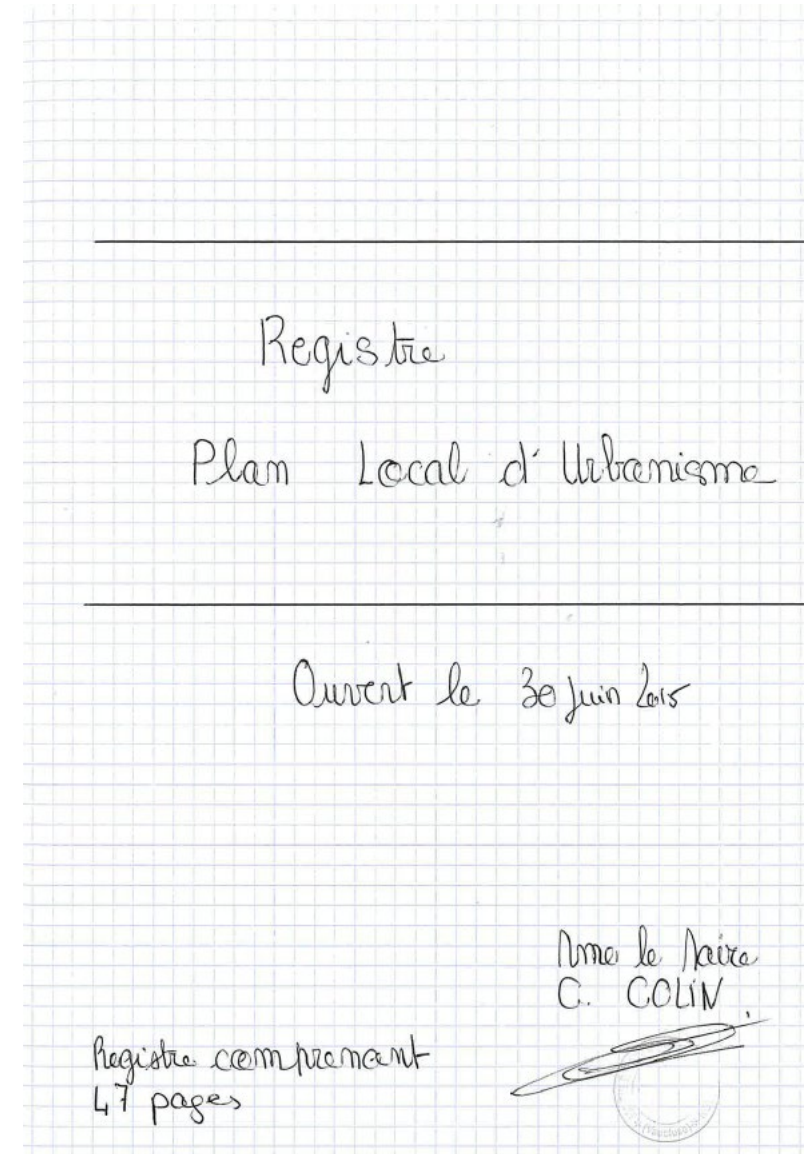 Registre
Plan Local d'Urbanisme
Ouvert le 30 juin 2015
Mme le Maire
C. COLIN
Registre comprenant
47 pages
(Vaucluse)